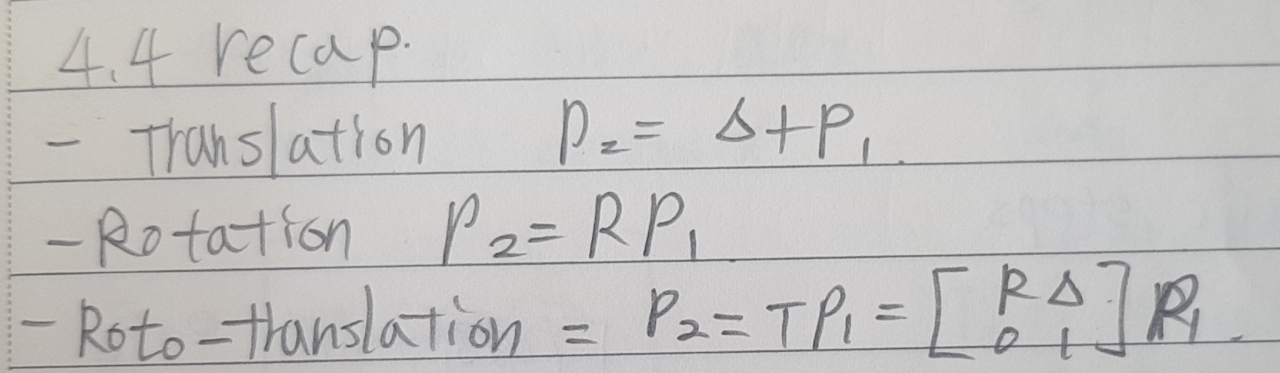 4.4 recap.
- Translation P₂ = Δ + P₁.
- Rotation P₂ = R P₁
- Roto-translation = P₂ = T P₁ = [R Δ; 0 1] P₁.